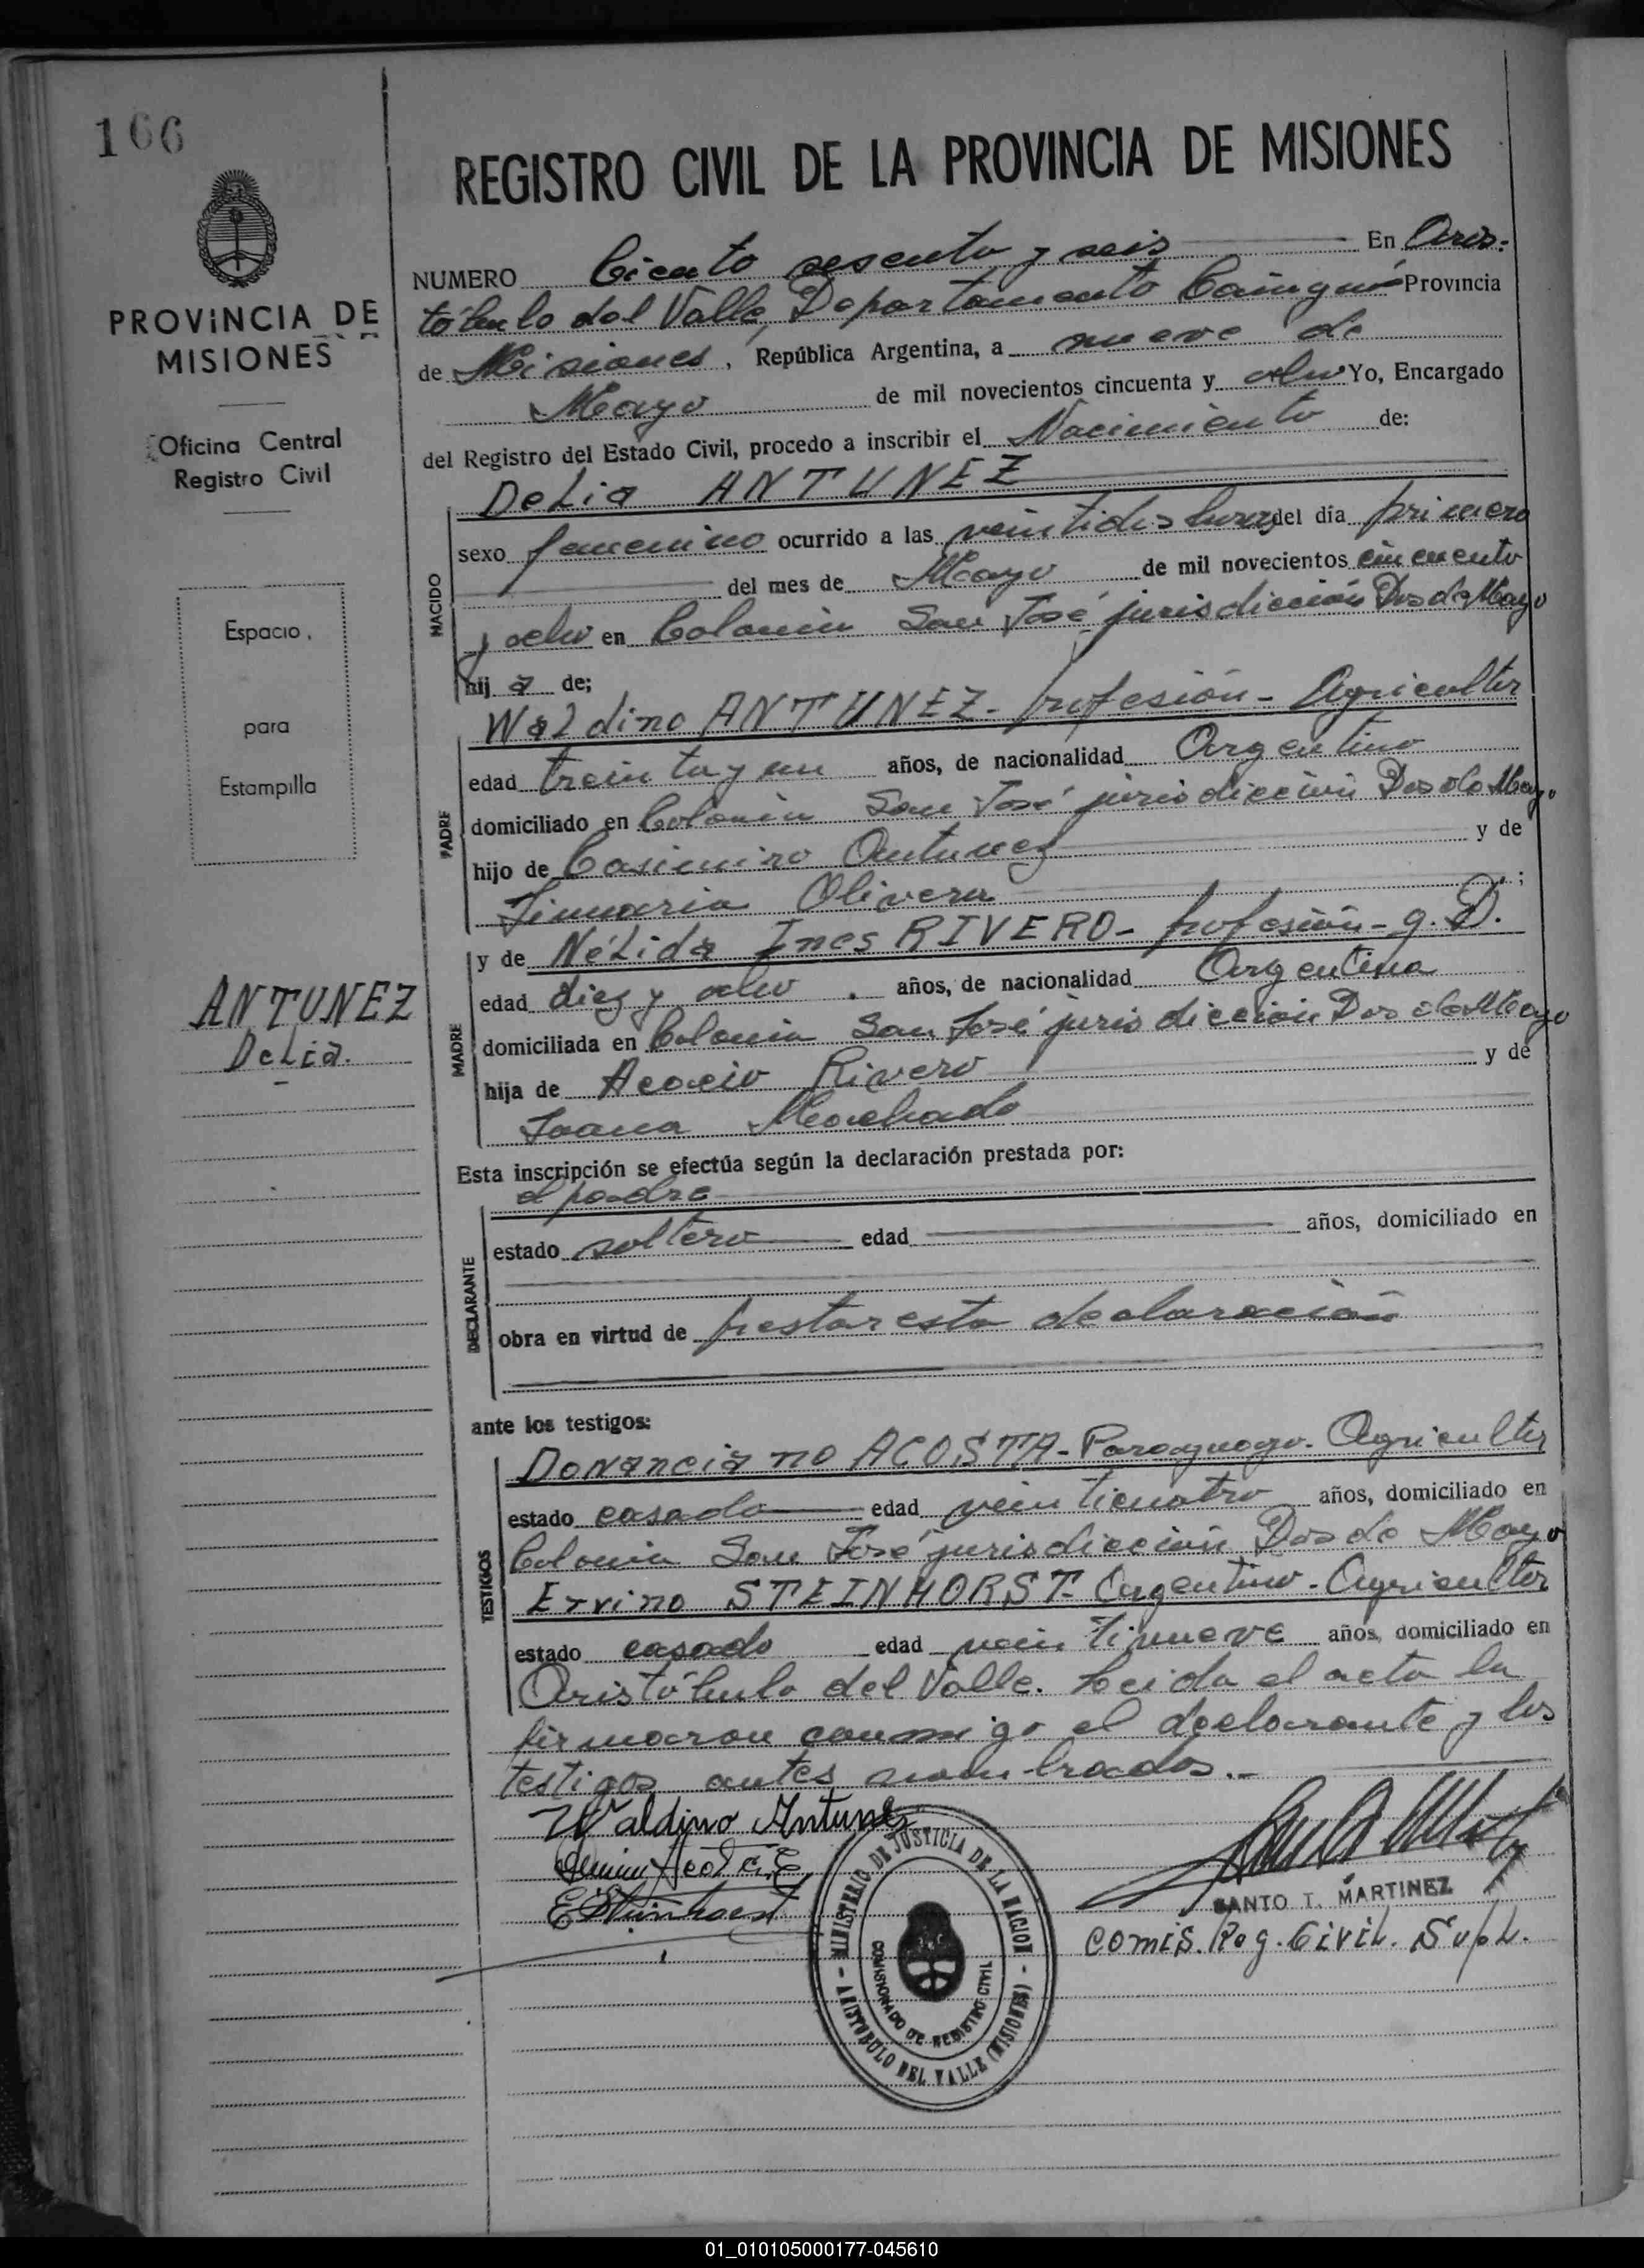 166
PROVINCIA DE
MISIONES
Oficina Central
Registro Civil
Espacio
para
Estampilla
ANTUNEZ
Delia.
REGISTRO CIVIL DE LA PROVINCIA DE MISIONES
NUMERO Ciento sesenta y seis En Aris-
tóbulo del Valle, Departamento Cainguás Provincia
de Misiones, República Argentina, a nueve de
Mayo de mil novecientos cincuenta y ocho Yo, Encargado
del Registro del Estado Civil, procedo a inscribir el Nacimiento de:
Delia ANTUNEZ
NACIDO
sexo femenino ocurrido a las veintidos horas del día primero
del mes de Mayo de mil novecientos cincuenta
y ocho en Colonia San José jurisdicción Dos de Mayo
hij a de;
Waldino ANTUNEZ - profesión - Agricultor
PADRE
edad treinta y un años, de nacionalidad Argentino
domiciliado en Colonia San José jurisdicción Dos de Mayo
hijo de Casimiro Antunez y de
Olivera ;
y de Nélida Ines RIVERO - profesión - q. D.
MADRE
edad diez y ocho . años, de nacionalidad Argentina
domiciliada en Colonia San José jurisdicción Dos de Mayo
hija de Acacio Rivero y de
Joana Machado
Esta inscripción se efectúa según la declaración prestada por:
el padre
DECLARANTE
estado soltero edad años, domiciliado en
obra en virtud de prestar esta declaración
ante los testigos:
Donanciano ACOSTA - Paraguayo - Agricultor
TESTIGOS
estado casado edad veinticuatro años, domiciliado en
Colonia San José jurisdicción Dos de Mayo
Ervino STEINHORST - Argentino - Agricultor
estado casado edad veintinueve años, domiciliado en
Aristóbulo del Valle. Leida el acta la
firmaron conmigo el declarante y los
testigos antes nombrados.-
Waldino Antunez
E Steinhorst
MINISTERIO DE JUSTICIA DE LA NACION
COMISIONADO DE REGISTRO CIVIL
ARISTOBULO DEL VALLE (MISIONES)
SANTO I. MARTINEZ
Comis. Reg. Civil. Supl.
01_010105000177-045610